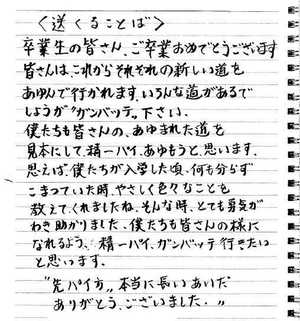 〈送くることば〉
卒業生の皆さん、ご卒業おめでとうございます
皆さんは、これからそれぞれの新しい道を
あゆんで行かれます。いろんな道があるで
しょうが“ガンバッテ〟下さい.
僕たちも皆さんの、あゆまれた道を
見本にして、精一パイ、あゆもうと、思います.
思えば、僕たちが入学した頃、何も分らず
こまっていた時、やさしく色々なことを
教えてくれましたね、そんな時、とても勇気が
わき助かりました、僕たちも皆さんの様に
なれるよう、精一パイ、ガンバッテ行きたい
と思います.
“先パイ方〟本当に長いあいだ
ありがとう、ございました.〟